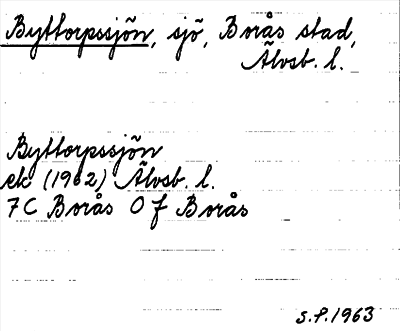 Byttorpssjön, sjö, Borås stad,
Älvsb. l.
Byttorpssjön
ek (1962) Älvsb. l.
7C Borås O f Borås
S.P. 1963